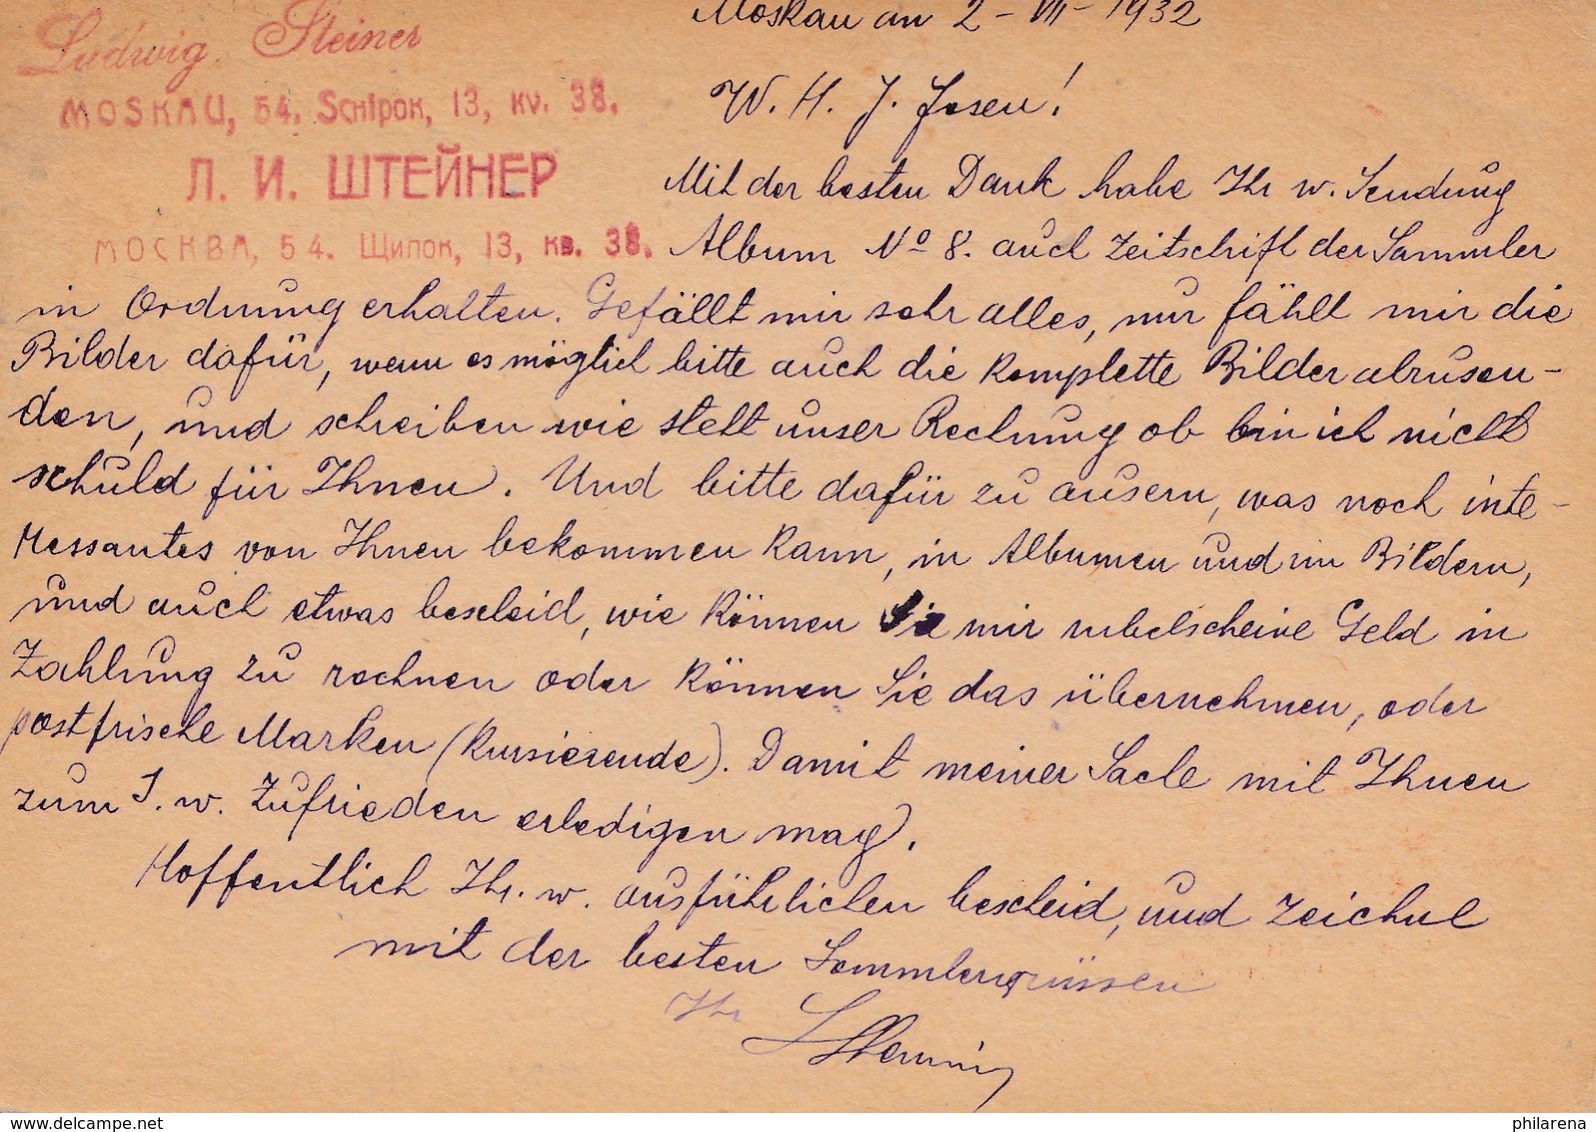 Ludwig Steiner
MOSKAU, 54. Schipok, 13, kv. 38.
Л. И. ШТЕЙНЕР
МОСКВА, 54. Щипок, 13, кв. 38.
Moskau an 2-VII-1932
W. H. J. Josen!
Mit der besten Dank habe Ihr w. Sendung
Album No 8. auch Zeitschrift der Sammler
in Ordnung erhalten. Gefällt mir sehr alles, nur fählt mir die
Bilder dafür, wenn es möglich bitte auch die Komplette Bilder abzusen-
den, und schreiben wie steht unser Rechnung ob bin ich nicht
schuld für Ihnen. Und bitte dafür zu ausern, was noch inte-
ressantes von Ihnen bekommen kann, in Albumen und im Bildern,
und auch etwas bescheid, wie können Sie mir rubelscheine Geld in
Zahlung zu rechnen oder können Sie das übernehmen, oder
postfrische Marken (Kursierende). Damit meiner Sache mit Ihnen
zum I. w. Zufrieden erledigen mag.
Hoffentlich Ihr. w. ausführlichen bescheid, und zeichne
mit der besten Sammlergrüssen
Ihr
philarena.com